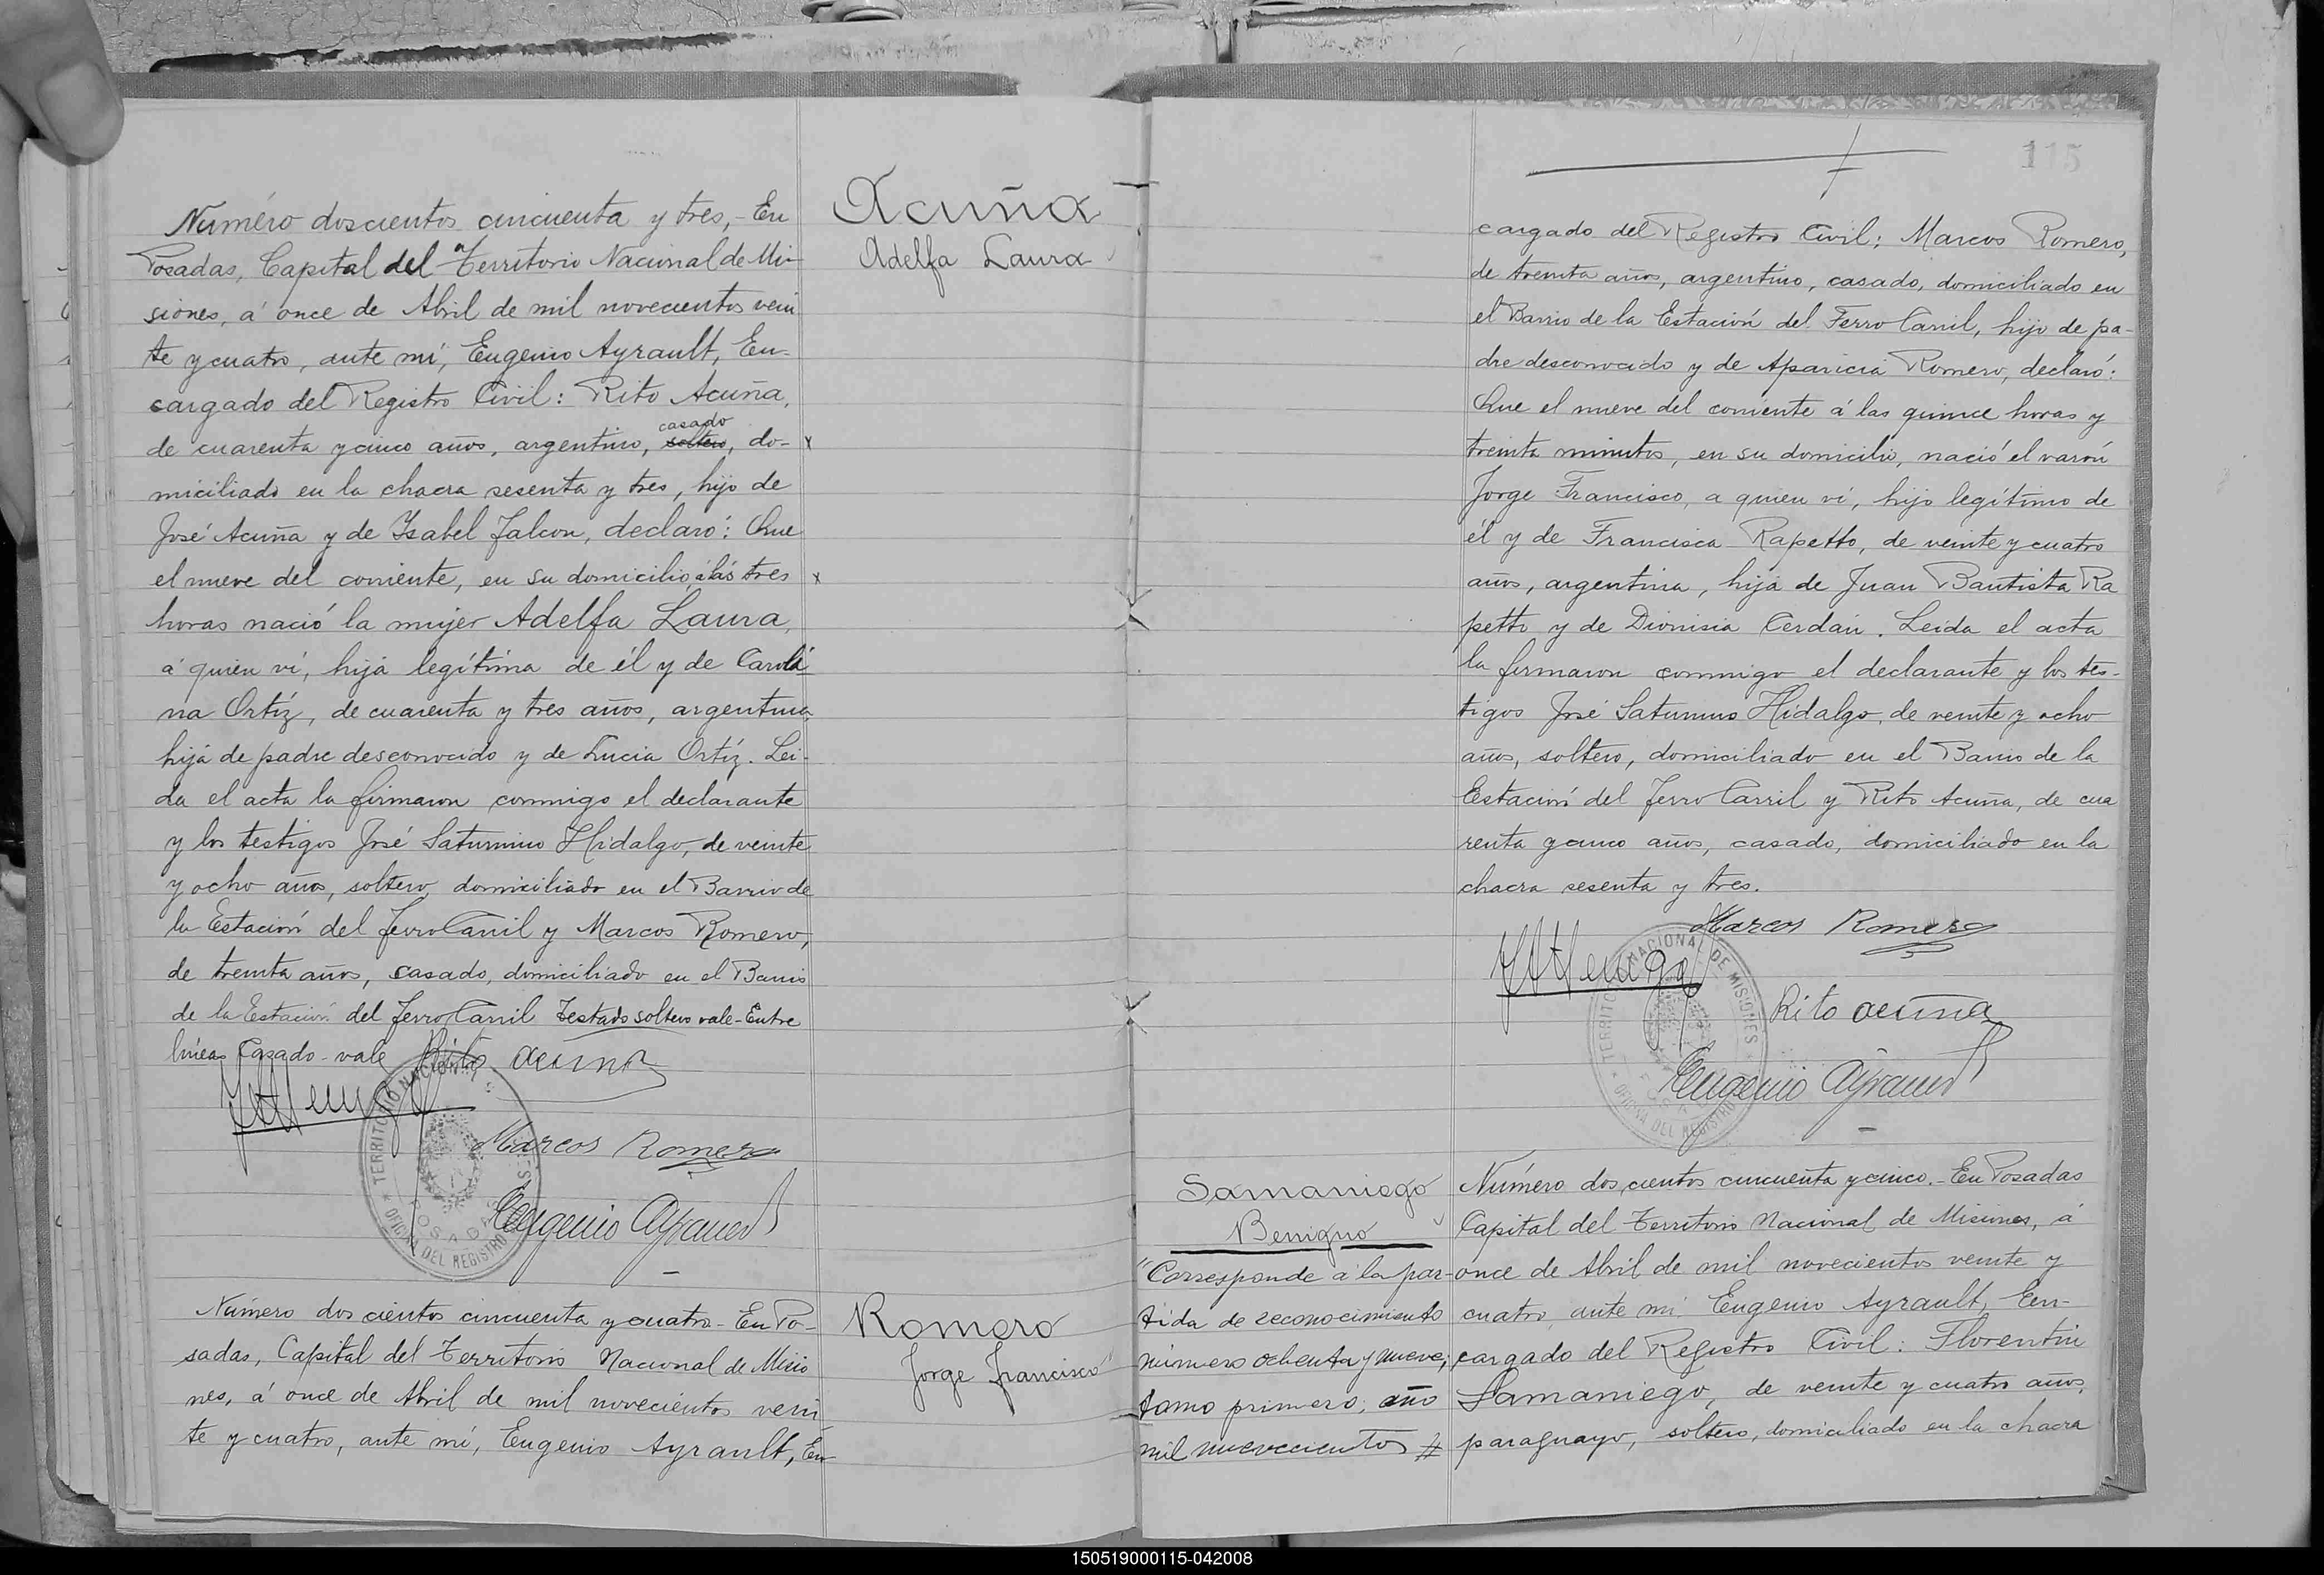 Acuña
Adelfa Laura
Número doscientos cincuenta y tres,- En
Posadas, Capital del Territorio Nacional de Mi-
siones, á once de Abril de mil novecientos vein
te y cuatro, ante mí, Eugenio Ayrault, En-
cargado del Registro Civil: Rito Acuña,
casado
de cuarenta y cinco años, argentino, soltero, do- x
miciliado en la chacra sesenta y tres, hijo de
José Acuña y de Isabel Falcon, declaró: Que
el nueve del corriente, en su domicilio, á las tres x
horas nació la mujer Adelfa Laura,
á quien ví, hija legítima de él y de Caroli-
na Ortíz, de cuarenta y tres años, argentina
hija de padre desconocido y de Lucia Ortíz. Lei-
da el acta la firmaron conmigo el declarante
y los testigos José Saturnino Hidalgo, de veinte
y ocho años, soltero, domiciliado en el Barrio de
la Estación del Ferro Carril y Marcos Romero,
de treinta años, casado, domiciliado en el Barrio
de la Estación del Ferro Carril Testado soltero vale-Entre
líneas Casado-vale Rito acuña
Marcos Romero
TERRITORIO NACIONAL
POSADAS
OFICINA DEL REGISTRO
Eugenio Ayrault
Romero
Jorge Francisco
Número dos cientos cincuenta y cuatro- En Po-
sadas, Capital del Territorio Nacional de Misio
nes, á once de Abril de mil novecientos vein
te y cuatro, ante mí, Eugenio Ayrault, En
115
cargado del Registro Civil; Marcos Romero,
de treinta años, argentino, casado, domiciliado en
el Barrio de la Estación del Ferro Carril, hijo de pa-
dre desconocido y de Aparicia Romero, declaró:
Que el nueve del corriente á las quince horas y
treinta minutos, en su domicilio, nació el varón
Jorge Francisco, a quien ví, hijo legítimo de
él y de Francisca Rapetto, de veinte y cuatro
años, argentina, hija de Juan Bautista Ra
petto y de Dionisia Cerdán. Leida el acta
la firmaron conmigo el declarante y los tes-
tigos José Saturnino Hidalgo, de veinte y ocho
años, soltero, domiciliado en el Barrio de la
Estación del Ferro Carril y Rito Acuña, de cua
renta y cinco años, casado, domiciliado en la
chacra sesenta y tres.
Marcos Romero
Rito acuña
TERRITORIO NACIONAL DE MISIONES
OFICINA DEL REGISTRO
Eugenio Ayrault
Samaniego
Benigno
"Corresponde a la par-
tida de reconocimiento
número ochenta y nueve;
tomo primero; año
mil nuevecientos #
Número dos cientos cincuenta y cinco.- En Posadas
Capital del Territorio Nacional de Misiones, á
once de Abril de mil novecientos veinte y
cuatro, ante mí Eugenio Ayrault, En-
cargado del Registro Civil: Florentin
Samaniego, de veinte y cuatro años,
paraguayo, soltero, domiciliado en la chacra
150519000115-042008